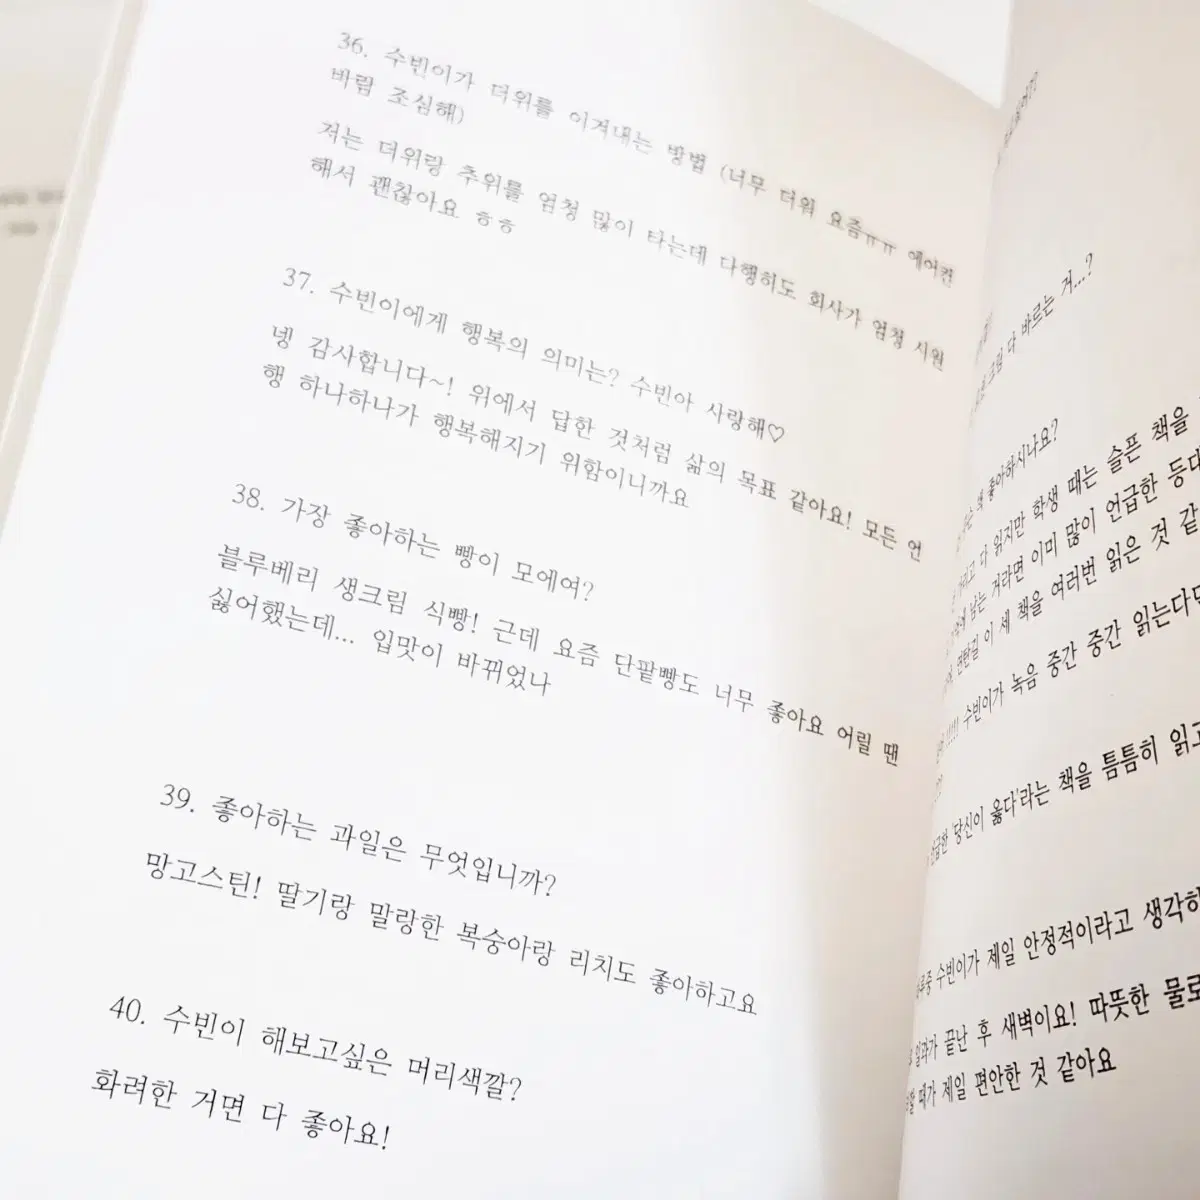 36. 수빈이가 더위를 이겨내는 방법 (너무 더워 요즘ㅠㅠ 에어컨
바람 조심해)
저는 더위랑 추위를 엄청 많이 타는데 다행히도 회사가 엄청 시원
해서 괜찮아요 ㅎㅎ
37. 수빈이에게 행복의 의미는? 수빈아 사랑해♡
넹 감사합니다~! 위에서 답한 것처럼 삶의 목표 같아요! 모든 언
행 하나하나가 행복해지기 위함이니까요
38. 가장 좋아하는 빵이 모에여?
블루베리 생크림 식빵! 근데 요즘 단팥빵도 너무 좋아요 어릴 땐
싫어했는데... 입맛이 바뀌었나
39. 좋아하는 과일은 무엇입니까?
망고스틴! 딸기랑 말랑한 복숭아랑 리치도 좋아하고요
40. 수빈이 해보고싶은 머리색깔?
화려한 거면 다 좋아요!
다 바르는 거...?
좋아하시나요?
다 읽지만 학생 때는 슬픈 책을
남는 거라면 이미 많이 언급한 등대
이 세 책을 여러번 읽은 것 같
!!!!! 수빈이가 녹음 중간 중간 읽는다던
'당신이 옳다'라는 책을 틈틈히 읽고
수빈이가 제일 안정적이라고 생각하
일과가 끝난 후 새벽이요! 따뜻한 물로
때가 제일 편안한 것 같아요